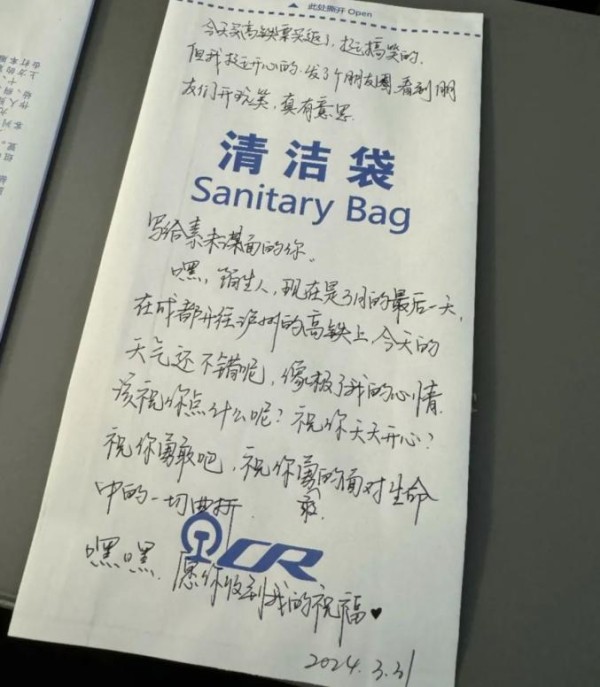 此处撕开 Open
今天买高铁票买返了，挺搞笑的，
但我挺开心的，发了个朋友圈，看到朋
友们开玩笑，真有意思
清洁袋
Sanitary Bag
写给素未谋面的你。
嘿，陌生人，现在是3月的最后一天，
在成都开往泸州的高铁上，今天的
天气还不错呢，像极了我的心情，
该祝你点什么呢？祝你天天开心？
祝你勇敢吧，祝你勇的面对生命
敢
中的一切曲折．
CR
嘿嘿．愿你收到我的祝福♥
2024.3.31